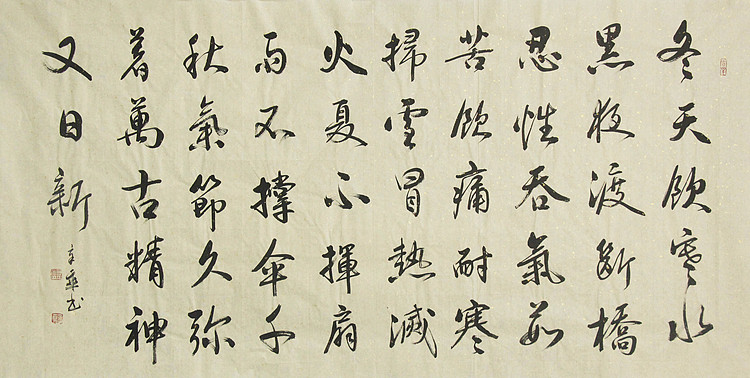 冬天飲寒水
黑夜渡斷橋
忍性吞氣茹
苦飲痛耐寒
掃雪冒熱滅
火夏不揮扇
雨不撐傘千
秋氣節久弥
著萬古精神
又日新